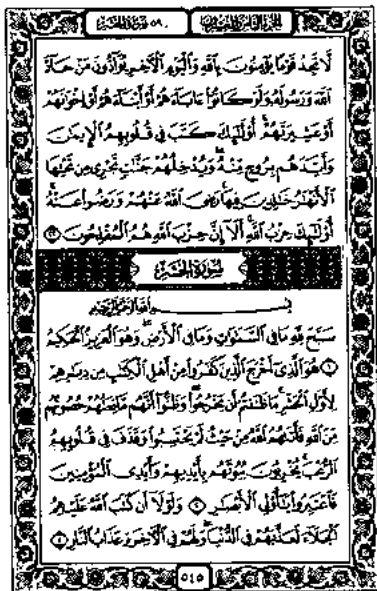 الجزء الثامن والعشرون ٥٩ سورة الحشر
لَّا تَجِدُ قَوْمًا يُؤْمِنُونَ بِٱللَّهِ وَٱلْيَوْمِ ٱلْآخِرِ يُوَآدُّونَ مَنْ حَآدَّ
ٱللَّهَ وَرَسُولَهُۥ وَلَوْ كَانُوٓا۟ ءَابَآءَهُمْ أَوْ أَبْنَآءَهُمْ أَوْ إِخْوَٰنَهُمْ
أَوْ عَشِيرَتَهُمْ ۚ أُو۟لَٰٓئِكَ كَتَبَ فِى قُلُوبِهِمُ ٱلْإِيمَٰنَ
وَأَيَّدَهُم بِرُوحٍ مِّنْهُ ۖ وَيُدْخِلُهُمْ جَنَّٰتٍ تَجْرِى مِن تَحْتِهَا
ٱلْأَنْهَٰرُ خَٰلِدِينَ فِيهَا ۚ رَضِىَ ٱللَّهُ عَنْهُمْ وَرَضُوا۟ عَنْهُ ۚ
أُو۟لَٰٓئِكَ حِزْبُ ٱللَّهِ ۚ أَلَآ إِنَّ حِزْبَ ٱللَّهِ هُمُ ٱلْمُفْلِحُونَ ٢٢
سُورَةُ الحَشْرِ
بِسْمِ ٱللَّهِ ٱلرَّحْمَٰنِ ٱلرَّحِيمِ
سَبَّحَ لِلَّهِ مَا فِى ٱلسَّمَٰوَٰتِ وَمَا فِى ٱلْأَرْضِ ۖ وَهُوَ ٱلْعَزِيزُ ٱلْحَكِيمُ
١ هُوَ ٱلَّذِىٓ أَخْرَجَ ٱلَّذِينَ كَفَرُوا۟ مِنْ أَهْلِ ٱلْكِتَٰبِ مِن دِيَٰرِهِمْ
لِأَوَّلِ ٱلْحَشْرِ ۚ مَا ظَنَنتُمْ أَن يَخْرُجُوا۟ ۖ وَظَنُّوٓا۟ أَنَّهُم مَّانِعَتُهُمْ حُصُونُهُم
مِّنَ ٱللَّهِ فَأَتَىٰهُمُ ٱللَّهُ مِنْ حَيْثُ لَمْ يَحْتَسِبُوا۟ ۖ وَقَذَفَ فِى قُلُوبِهِمُ
ٱلرُّعْبَ ۚ يُخْرِبُونَ بُيُوتَهُم بِأَيْدِيهِمْ وَأَيْدِى ٱلْمُؤْمِنِينَ
فَٱعْتَبِرُوا۟ يَٰٓأُو۟لِى ٱلْأَبْصَٰرِ ٢ وَلَوْلَآ أَن كَتَبَ ٱللَّهُ عَلَيْهِمُ
ٱلْجَلَآءَ لَعَذَّبَهُمْ فِى ٱلدُّنْيَا ۖ وَلَهُمْ فِى ٱلْآخِرَةِ عَذَابُ ٱلنَّارِ ٣
٥٤٥